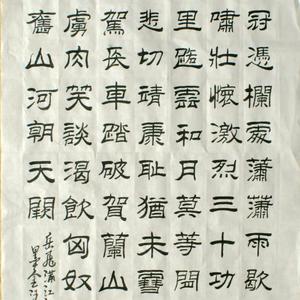 冠憑欄處蕭蕭雨歇
嘯壯懷激烈三十功
里路雲和月莫等閒
悲切靖康恥猶未雪
駕長車踏破賀蘭山
虜肉笑談渴飲匈奴
舊山河朝天闕
岳飛滿江